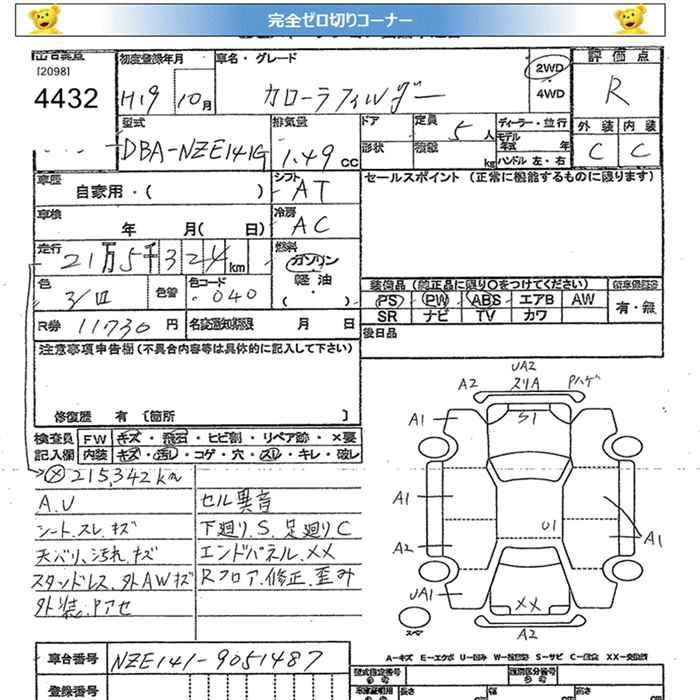 完全ゼロ切りコーナー
[2098]
4432
初度登録年月
H19 10月
車名・グレード
カローラフィルダー
2WD
4WD
評価点
R
型式
DBA-NZE141G
排気量
1.49 cc
ドア
形状
定員 5人
積載 kg
ディーラー・並行
モデル年式 年
ハンドル 左・右
外装 内装
C C
車歴
自家用・( )
シフト
AT
セールスポイント (正常に機能するものに限ります)
車検
年 月( 日)
冷房
AC
走行
21万5千324km
燃料
ガソリン
軽油
( )
色
シロ
色替
色コード
040
装備品 (純正品に限り○をつけてください)
PS PW ABS エアB AW
SR ナビ TV カワ
有・無
R券 11730円
名変通知期限 月 日
後日品
注意事項申告欄(不具合内容等は具体的に記入して下さい)
修復歴 有 〔箇所 〕
検査員 FW キズ・飛石・ヒビ割・リペア跡・×要
記入欄 内装 キズ・汚レ・コゲ・穴・スレ・キレ・破レ
215,342km
A.U
シート.スレ.キズ
天バリ、汚れ、キズ
スタンドレス、外AWキズ
外装、Pアセ
セル異音
下廻り.S.足廻りC
エンドパネル.XX
Rフロア.修正.歪み
UA2
A2 スリA Pハゲ
A1
S1
A1
U1
A1
A2
UA1
XX
スペア
A2
A-キズ E-エクボ U-凹み W-補修跡 S-サビ C-腐食 XX-交換済
車台番号 NZE141-9051487
登録番号
型式指定番号
類別区分番号
長さ
幅
高さ